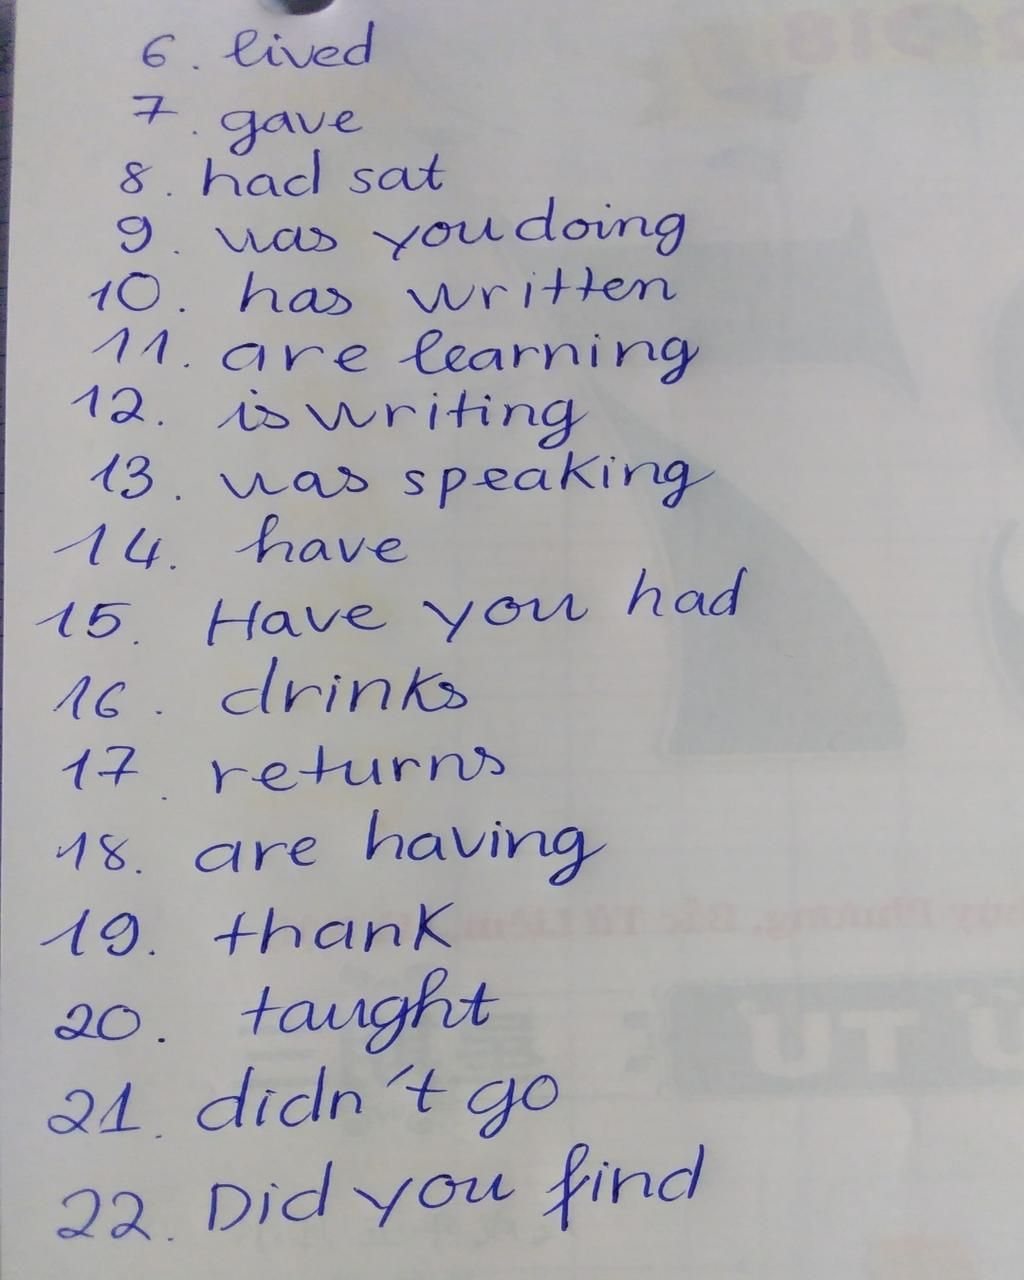 6. lived
7. gave
8. had sat
9. was you doing
10. has written
11. are learning
12. is writing
13. was speaking
14. have
15. Have you had
16. drinks
17. returns
18. are having
19. thank
20. taught
21. didn't go
22. Did you find